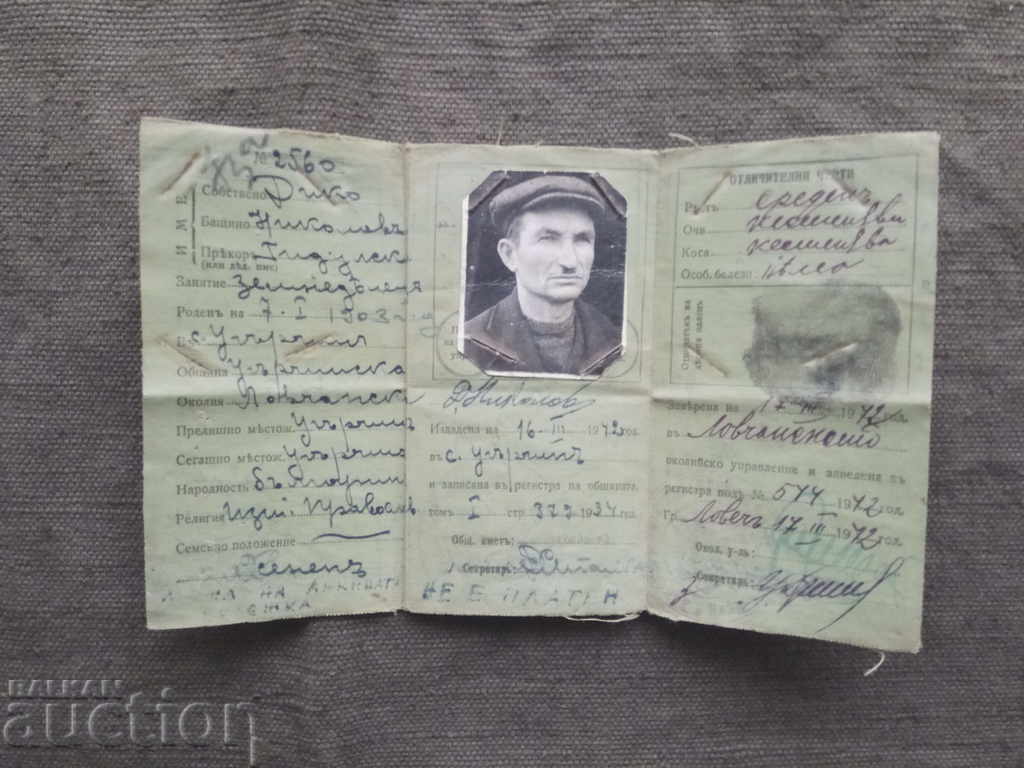 № 2560
ИМЕ
Собствено Дико
Бащино Николовъ
Прѣкоръ
(или дѣд. име)
Занятие земледѣлецъ
Роденъ на 7-I 1903 год
въ с. Угърчинъ
Община Угърчинска
Околия Ловчанска
Прѣдишно мѣстож. Угърчинъ
Сегашно мѣстож. Угърчинъ
Народность българинъ
Религия Изт. Православ.
Семейно положение
жененъ
Д. Николовъ
Издадена на 16-III 1942 год.
въ с. Угърчинъ
и записана въ регистра на общината
томъ I стр 373 934 год.
Общ. кметъ:
Секретарь:
НЕ Е ПЛАТЕН
ОТЛИЧИТЕЛНИ ЧЕРТИ
Ръстъ срѣденъ
Очи кестеняви
Коса кестенява
Особ. белези нѣма
Отпечатъкъ на
дѣсния палецъ
Завѣрена на 17-III 1942 год.
въ Ловчанското
околийско управление и заведена въ
регистра подъ № 574 1942 год.
Гр. Ловечъ 17 III 1942 год.
Окол. у-лъ:
Секретарь:
BALKAN
auction